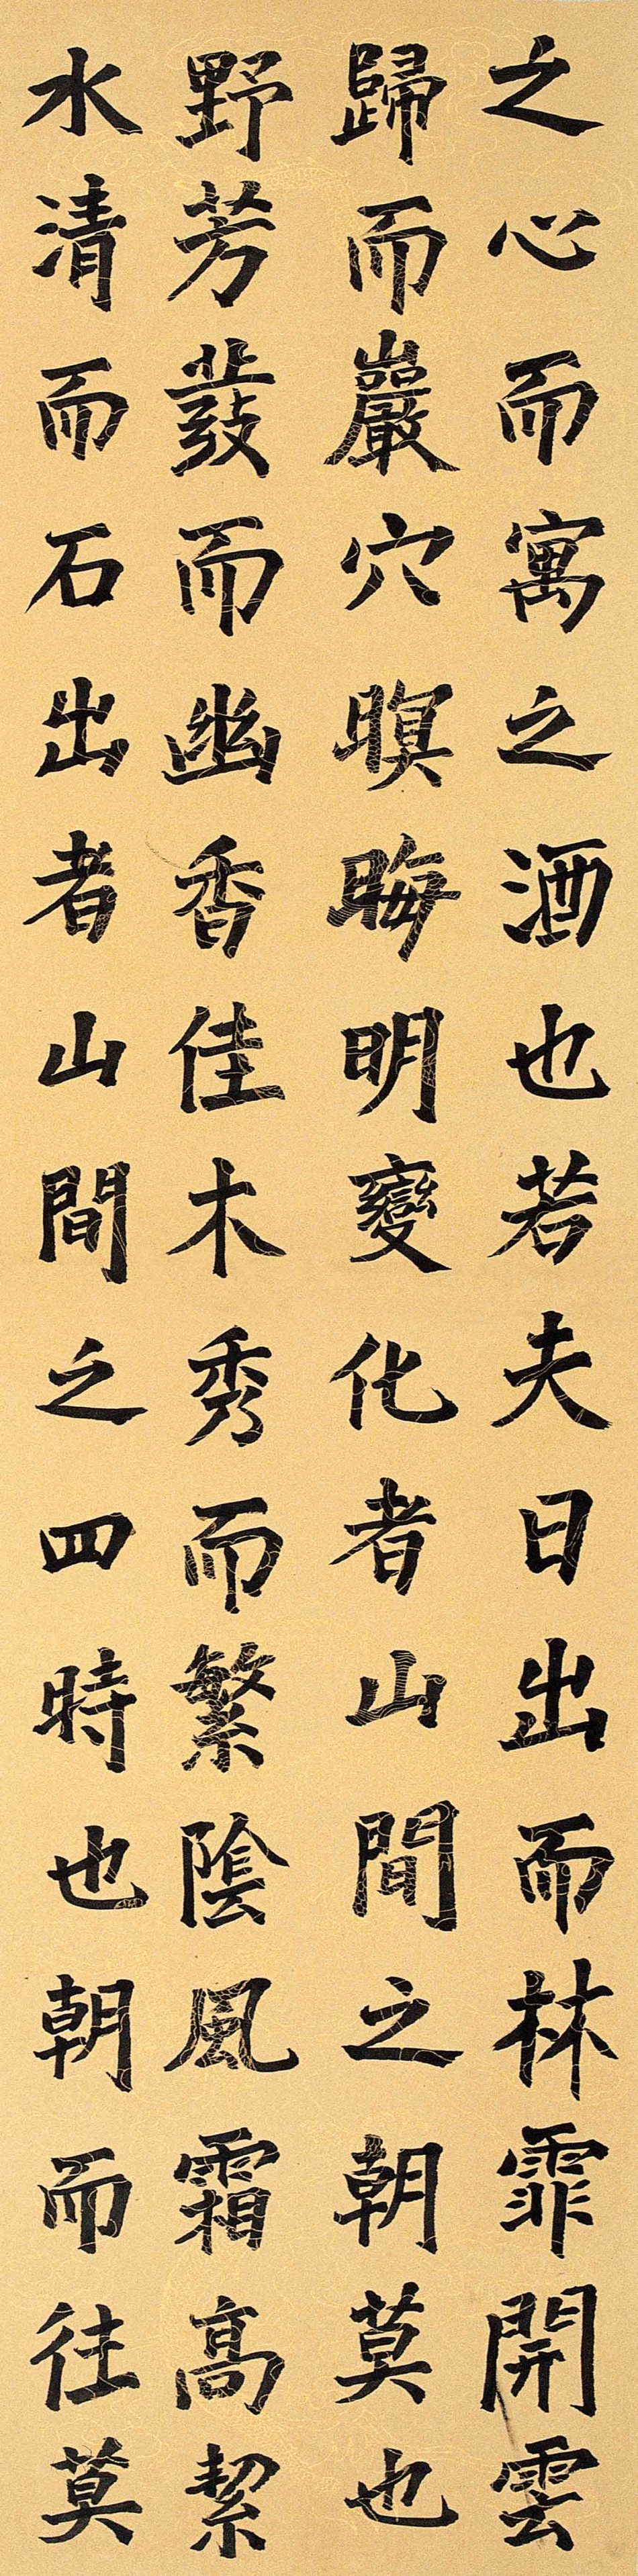 之心而寓之酒也若夫日出而林霏開雲
歸而巖穴暝晦明變化者山間之朝莫也
野芳發而幽香佳木秀而繁陰風霜高絜
水清而石出者山間之四時也朝而往莫